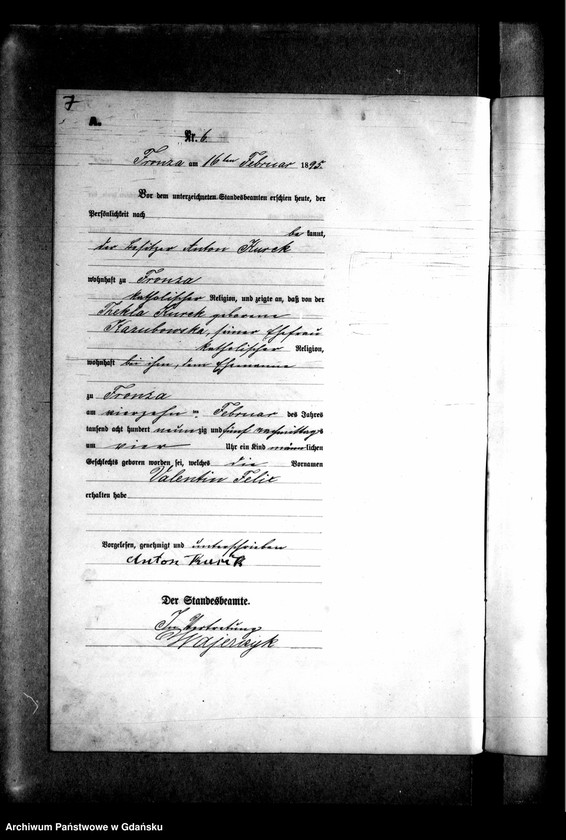 7
A.
Nr. 6.
Fronza am 16ten Februar 1895.
Vor dem unterzeichneten Standesbeamten erschien heute, der
Persönlichkeit nach
be kannt,
der Besitzer Anton Kurek
wohnhaft zu Fronza
katholischer Religion, und zeigte an, daß von der
Thekla Kurek geborene
Kazubowska, seiner Ehefrau
katholischer Religion,
wohnhaft bei ihm, dem Ehemanne
zu Fronza
am vierzehn ten Februar des Jahres
tausend acht hundert neunzig und fünf nachmittags
um vier Uhr ein Kind männlichen
Geschlechts geboren worden sei, welches die Vornamen
Valentin Felix
erhalten habe
Vorgelesen, genehmigt und unterschrieben
Anton Kurek
Der Standesbeamte.
In Vertretung
Archiwum Państwowe w Gdańsku